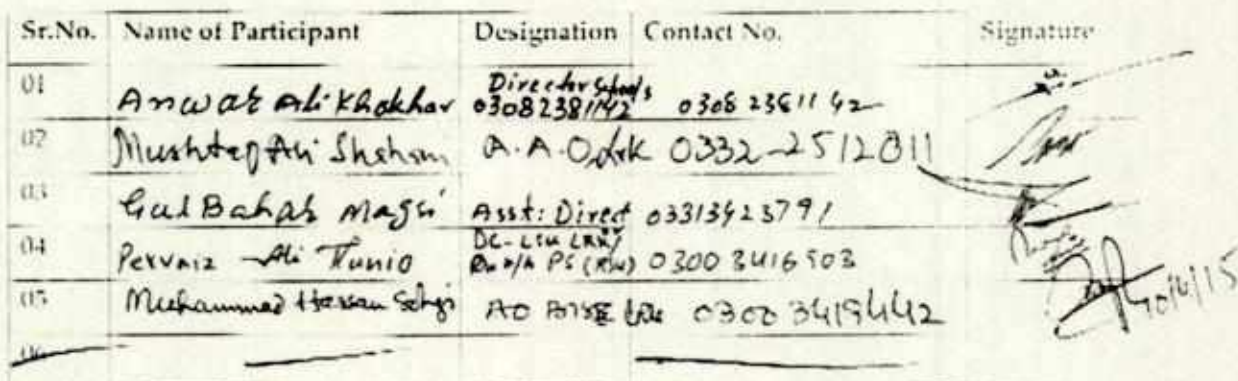 Sr.No. Name of Participant Designation Contact No. Signature
01 Anwar Ali Khokhar Director Schools 03082381142 0308 2381142
02 Mushtaq Ali Shahani A.A.O 0332-2512011
03 Gul Bahar Magsi Asst: Direct 03313423791
04 Pervaiz Ali Tunio DC-LSU LRK/ PS (RSU) 0300 3416903
05 Muhammad Hassan AO BISE LRK 0300 3419442
06